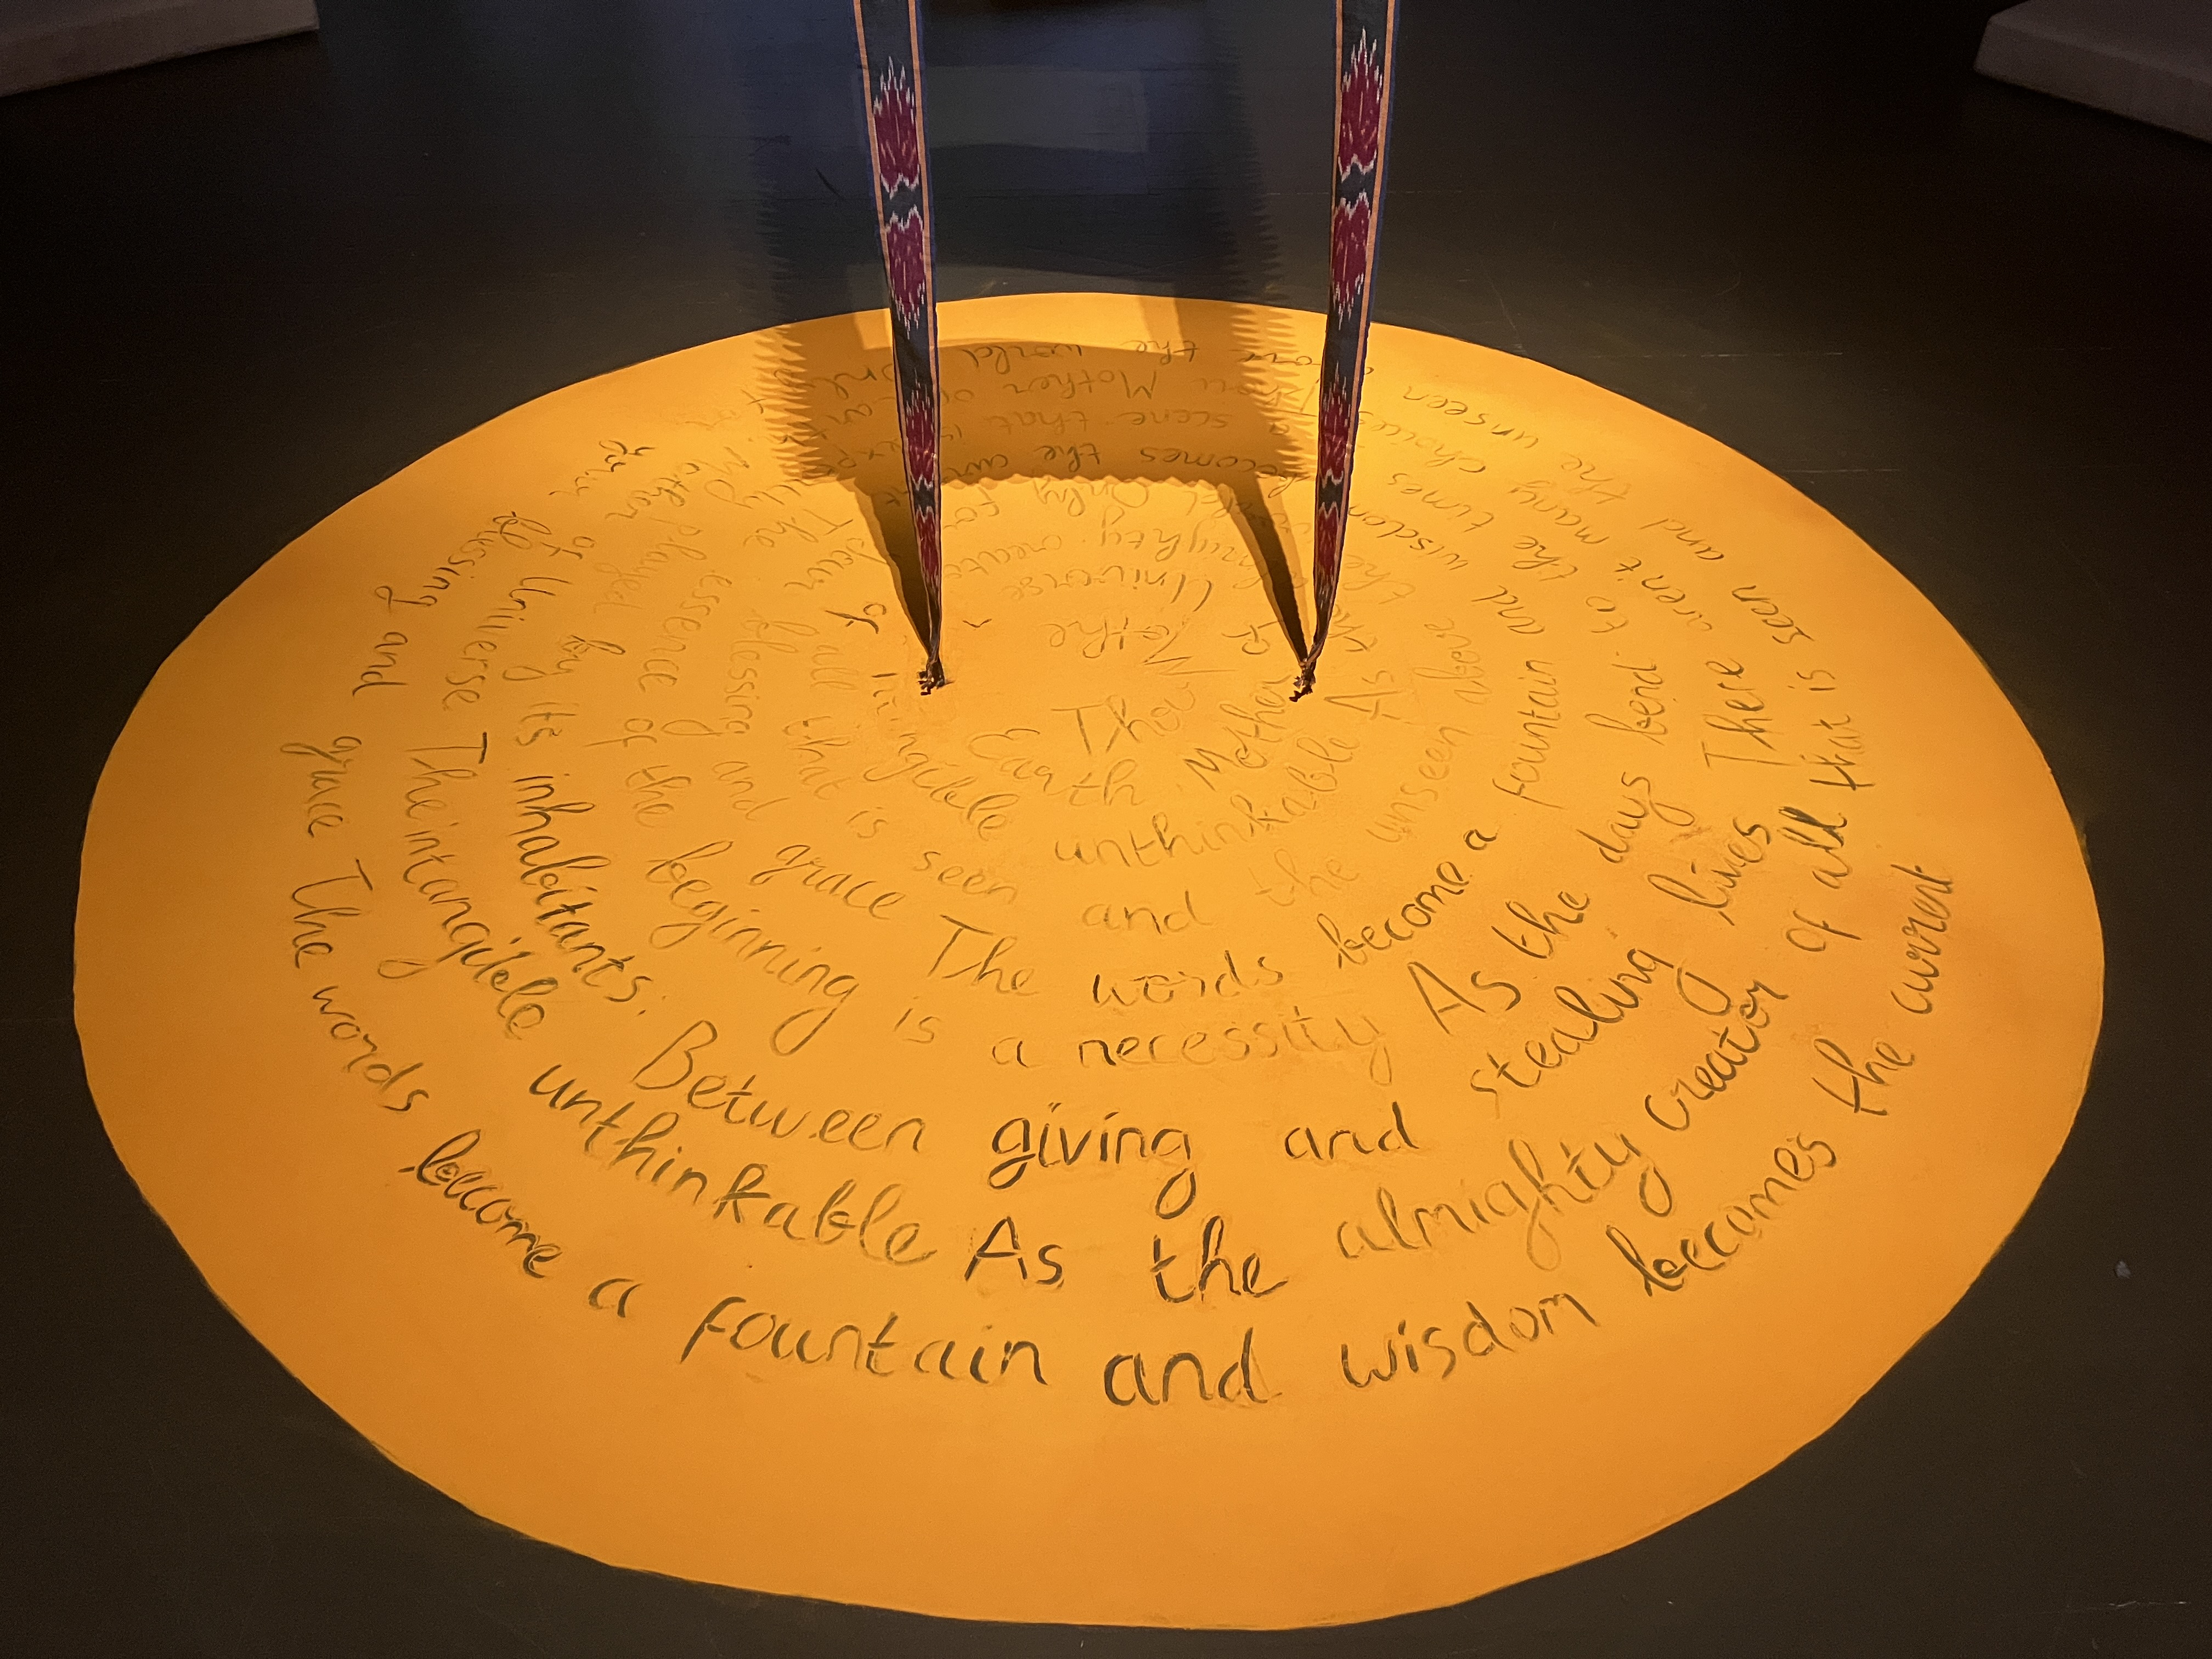 Thou Mothe
Earth. Mother of Universe
intangible unthinkable As the almighty creator
of all that is seen and the unseen above the world Only for
your blessing and grace The words become a fountain and wisdom becomes the
The essence of the beginning is a necessity As the days bend to the times a scene that is
played by its inhabitants. Between giving and stealing lives There aren't many choices Thou Mother of Earth
Mother of Universe The intangible unthinkable As the almighty creator of all that is seen and the unseen above the world Only for
your blessing and grace The words become a fountain and wisdom becomes the current